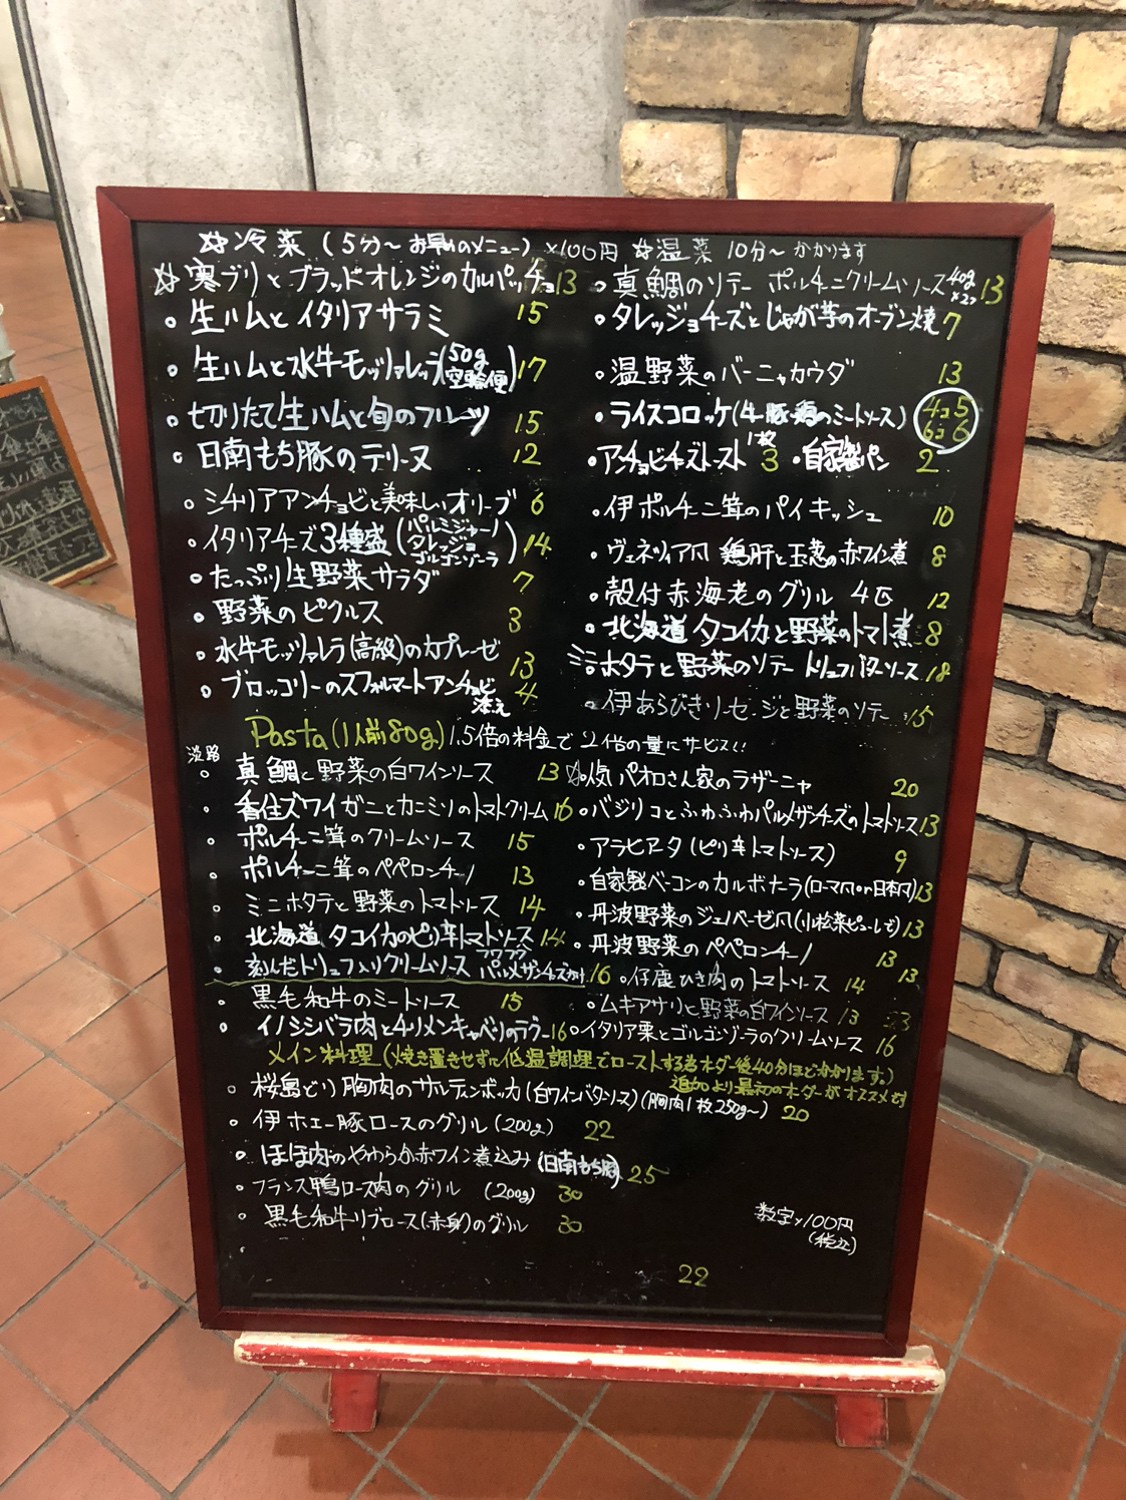 ☆冷菜(5分〜お早いメニュー)×100円
☆寒ブリとブラッドオレンジのカルパッチョ 13
・生ハムとイタリアサラミ 15
・生ハムと水牛モッツァレッラ(50g空輸便) 17
・切りたて生ハムと旬のフルーツ 15
・日南もち豚のテリーヌ 12
・シチリアアンチョビと美味しいオリーブ 6
・イタリアチーズ3種盛(パルミジャーノ タレッジョ ゴルゴンゾーラ) 14
・たっぷり生野菜サラダ 7
・野菜のピクルス 3
・水牛モッツァレラ(高級)のカプレーゼ 13
・ブロッコリーのスフォルマートアンチョビ添え 4
☆温菜 10分〜かかります
・真鯛のソテー ポルチーニクリームソース 40g×2コ 13
・タレッジョチーズとじゃが芋のオーブン焼 7
・温野菜のバーニャカウダ 13
・ライスコロッケ(牛・豚・鶏のミートソース) 4コ5 6コ6
・アンチョビチーズトースト 1枚 3 ・自家製パン 2
・伊ポルチーニ茸のパイキッシュ 10
・ヴェネツィア風 鶏肝と玉葱の赤ワイン煮 8
・殻付赤海老のグリル 4匹 12
・北海道タコイカと野菜のトマト煮 8
ミニホタテと野菜のソテー トリュフバターソース 18
・伊あらびきソーセージと野菜のソテー 15
Pasta(1人前80g) 1.5倍の料金で2倍の量にサービス!!
淡路
・真鯛と野菜の白ワインソース 13
・香住ズワイガニとカニミソのトマトクリーム 16
・ポルチーニ茸のクリームソース 15
・ポルチーニ茸のペペロンチーノ 13
・ミニホタテと野菜のトマトソース 14
・北海道タコイカのピリ辛トマトソース 14
・刻んだトリュフ入りクリームソース フワフワパルメザンチーズかけ 16
・黒毛和牛のミートソース 15
・イノシシバラ肉とチリメンキャベツのラグー 16
☆人気 パオロさん家のラザーニャ 20
・バジリコとふわふわパルメザンチーズのトマトソース 13
・アラビアータ(ピリ辛トマトソース) 9
・自家製ベーコンのカルボナーラ(ローマ風or日本風) 13
・丹波野菜のジェノベーゼ風(小松菜ピューレで) 13
・丹波野菜のペペロンチーノ 13
・仔鹿ひき肉のトマトソース 14 13
・ムキアサリと野菜の白ワインソース 13
・イタリア栗とゴルゴンゾーラのクリームソース 16
メイン料理(焼き置きせずに低温調理でローストする為オーダー後40分ほどかかります。)
追加より最初のオーダーがオススメです
・桜島どり胸肉のサルティンボッカ(白ワインバターソース)(胸肉1枚250g〜) 20
・伊ホエー豚ロースのグリル(200g) 22
・ほほ肉のやわらか赤ワイン煮込み(日南もち豚) 25
・フランス鴨ロース肉のグリル (200g) 30
・黒毛和牛リブロース(赤身)のグリル 30
数字×100円
(税込)
22